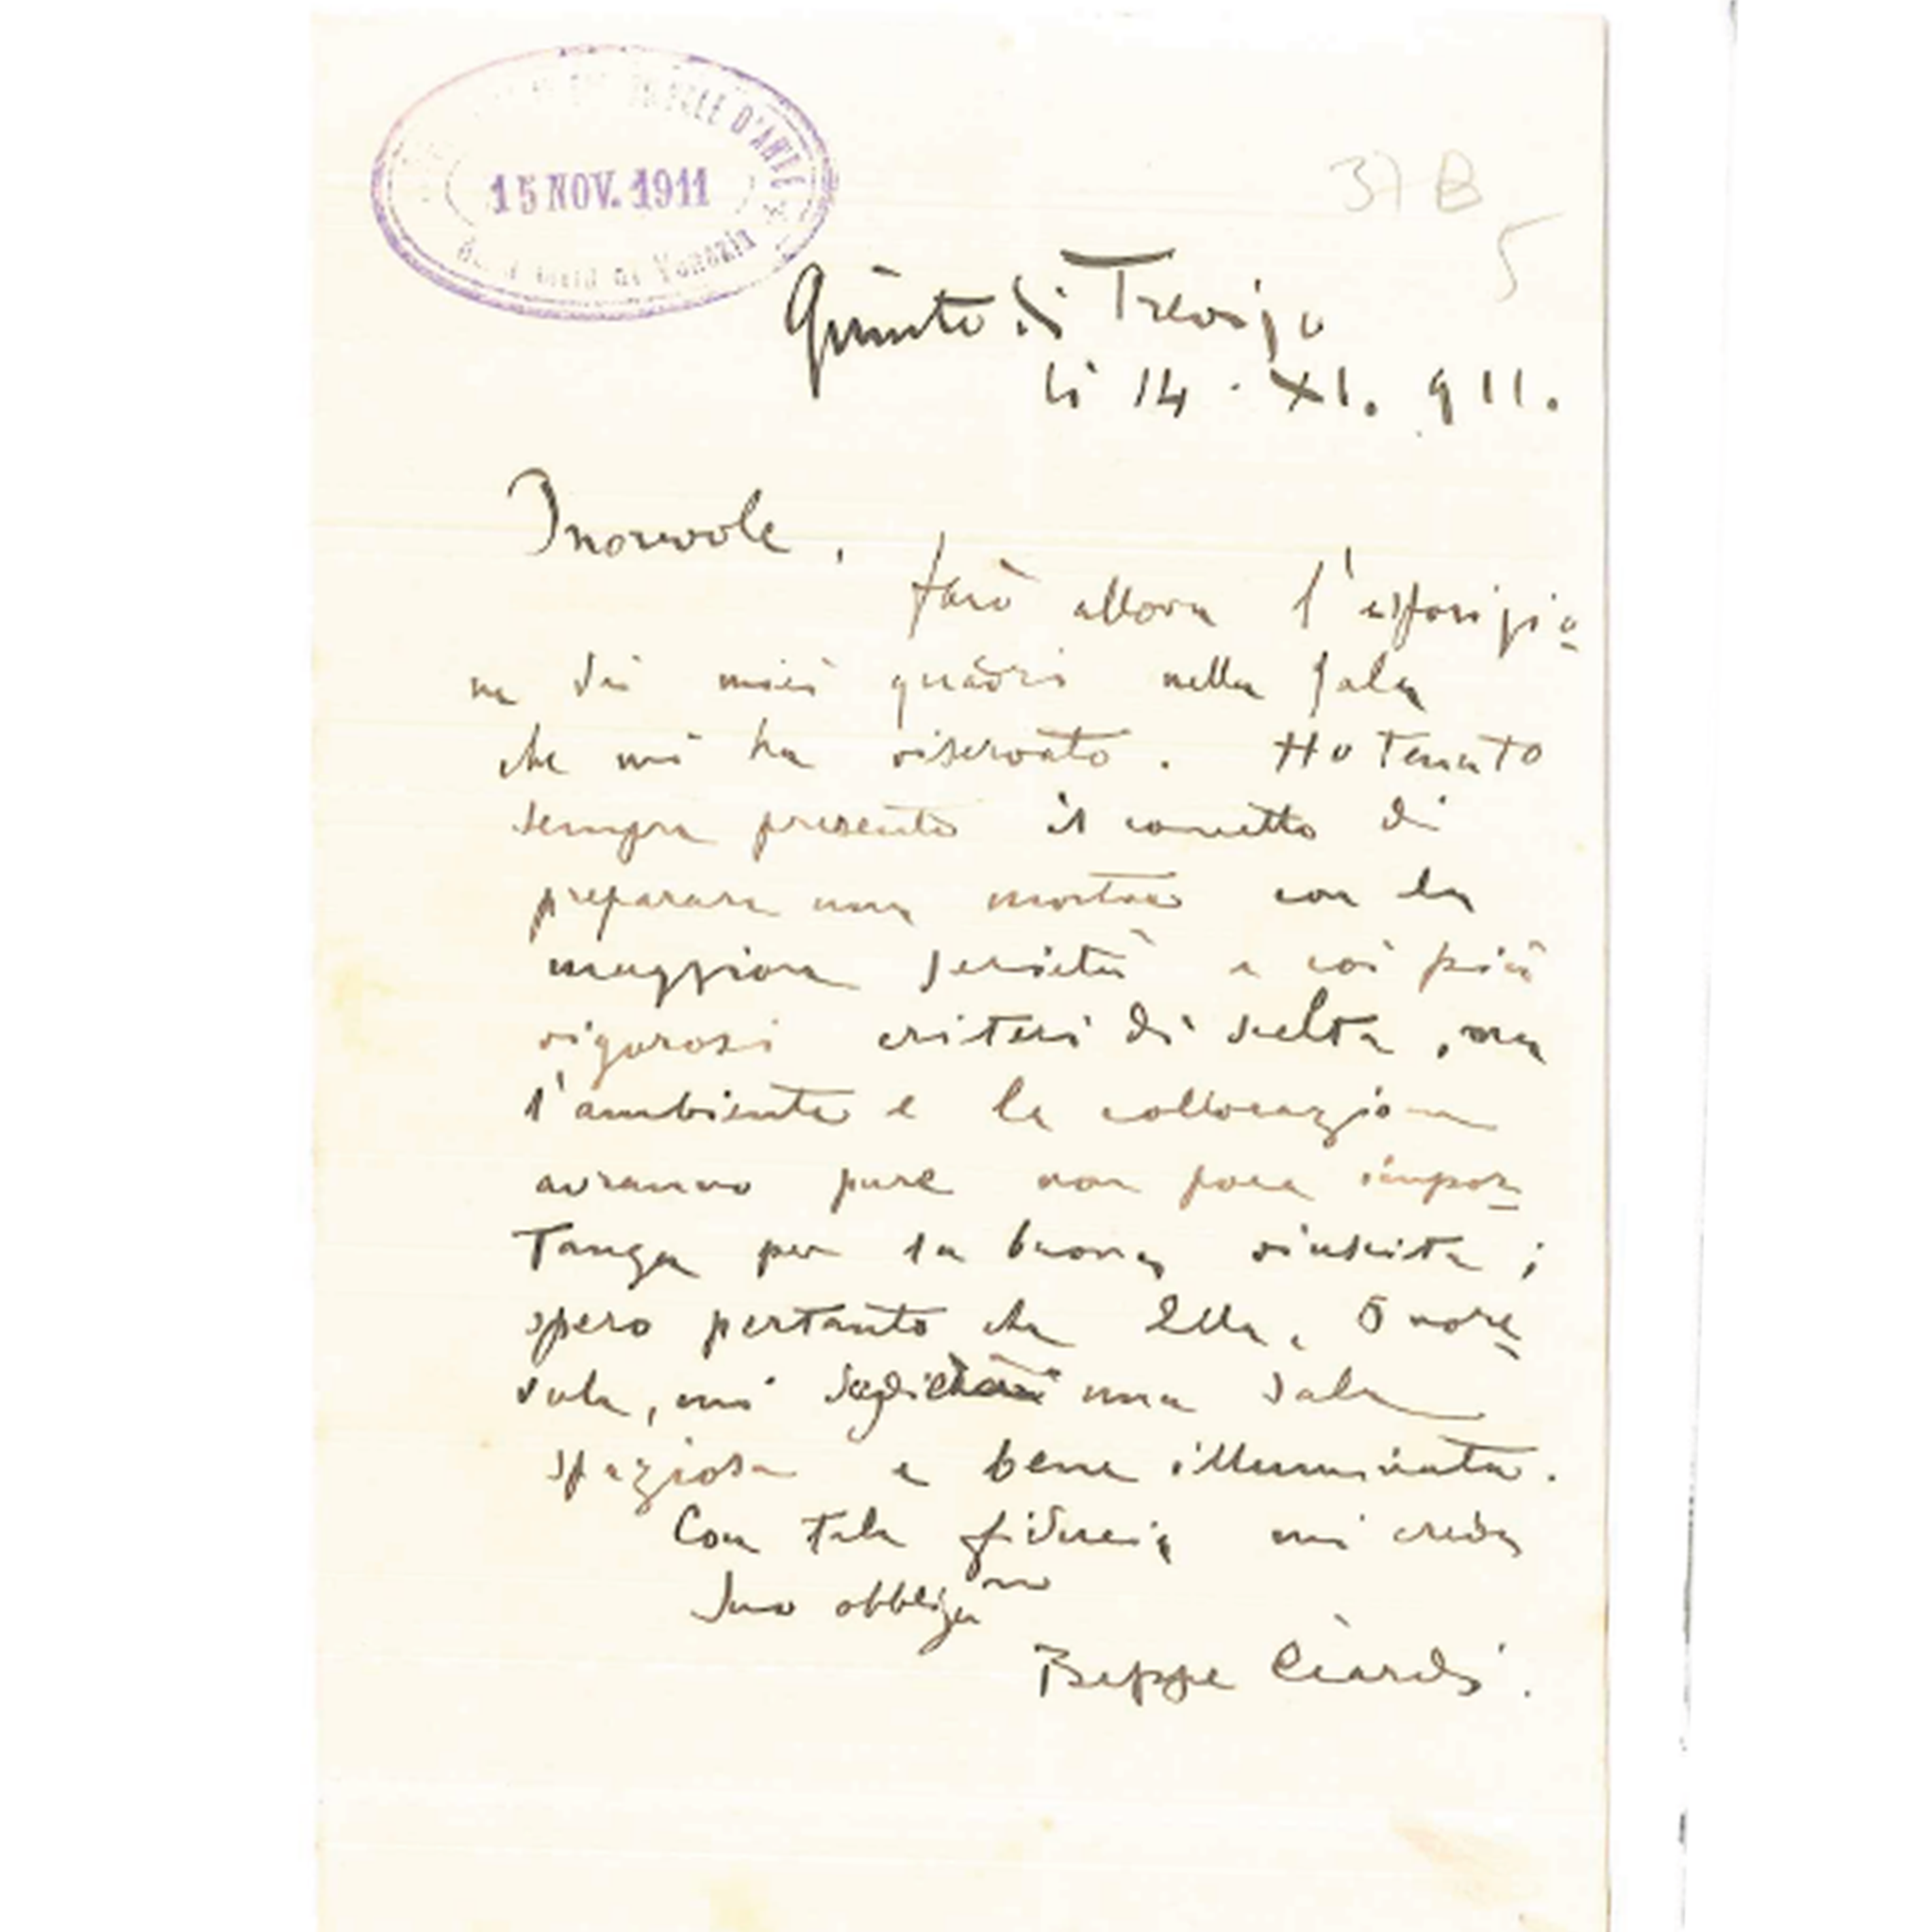 BELLE D'ARTE
15 NOV. 1911
di Venezia
37 B
5
Quinto di Treviso
li 14 · XI. 911.
Onorevole,
farò allora l'esposizio
ne dei miei quadri nella sala
che mi ha riservato. Ho tenuto
sempre presente il concetto di
preparare una mostra con la
maggiore serietà e coi più
rigorosi criteri di scelta, ma
l'ambiente e la collocazione
avranno pure non poca impor
tanza per la buona riuscita;
spero pertanto che Ella, Onore
vole, mi una sala
spaziosa e bene illuminata.
Con tale fiducia mi creda
Suo obbligmo
Beppe Ciardi.